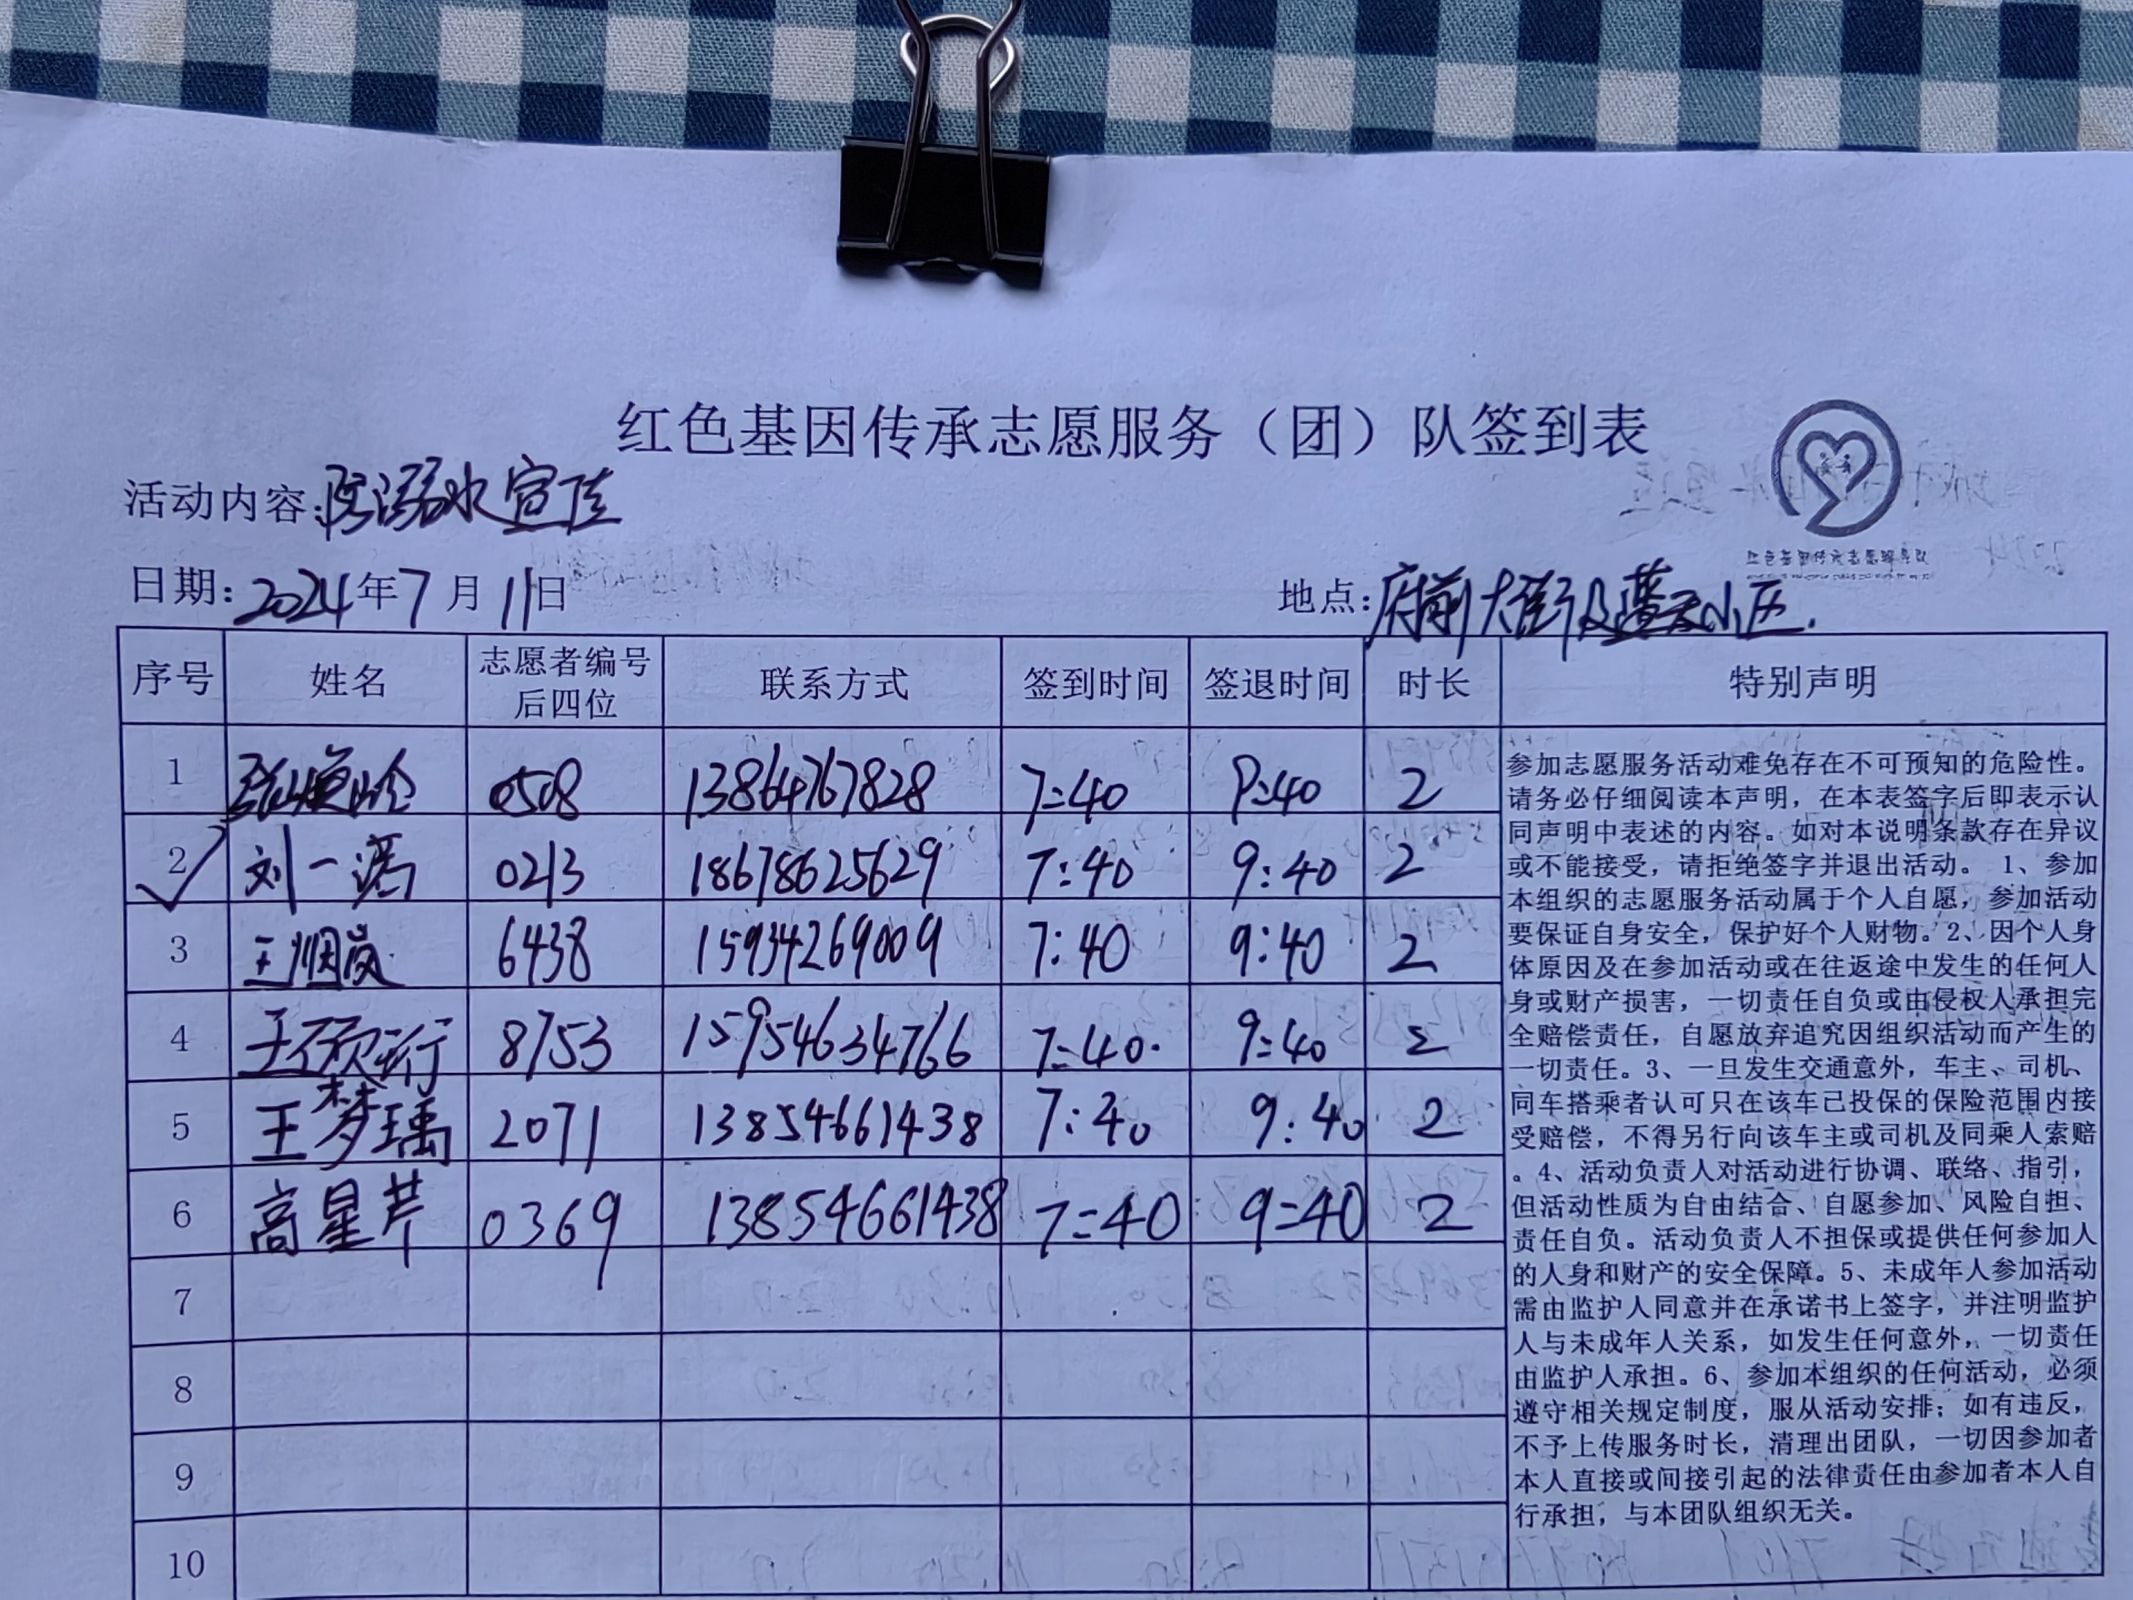 红色基因传承志愿服务（团）队签到表
活动内容:防溺水宣传
红色基因传承志愿服务队
日期:2024年7月11日 地点:府前大街及蓝天小区.
序号 姓名 志愿者编号后四位 联系方式 签到时间 签退时间 时长 特别声明
1 0508 13864767828 7:40 9:40 2
2 刘一 0213 18678625629 7:40 9:40 2
3 王烟岚 6438 15934269009 7:40 9:40 2
4 王硕珩 8753 15954634766 7:40. 9:40 2
5 王梦瑀 2071 13854661438 7:40 9:40 2
6 高星芹 0369 13854661438 7:40 9:40 2
7
8
9
10
参加志愿服务活动难免存在不可预知的危险性。
请务必仔细阅读本声明，在本表签字后即表示认
同声明中表述的内容。如对本说明条款存在异议
或不能接受，请拒绝签字并退出活动。 1、参加
本组织的志愿服务活动属于个人自愿，参加活动
要保证自身安全，保护好个人财物。2、因个人身
体原因及在参加活动或在往返途中发生的任何人
身或财产损害，一切责任自负或由侵权人承担完
全赔偿责任，自愿放弃追究因组织活动而产生的
一切责任。3、一旦发生交通意外，车主、司机、
同车搭乘者认可只在该车已投保的保险范围内接
受赔偿，不得另行向该车主或司机及同乘人索赔
。4、活动负责人对活动进行协调、联络、指引，
但活动性质为自由结合、自愿参加、风险自担、
责任自负。活动负责人不担保或提供任何参加人
的人身和财产的安全保障。5、未成年人参加活动
需由监护人同意并在承诺书上签字，并注明监护
人与未成年人关系，如发生任何意外，一切责任
由监护人承担。6、参加本组织的任何活动，必须
遵守相关规定制度，服从活动安排；如有违反，
不予上传服务时长，清理出团队，一切因参加者
本人直接或间接引起的法律责任由参加者本人自
行承担，与本团队组织无关。